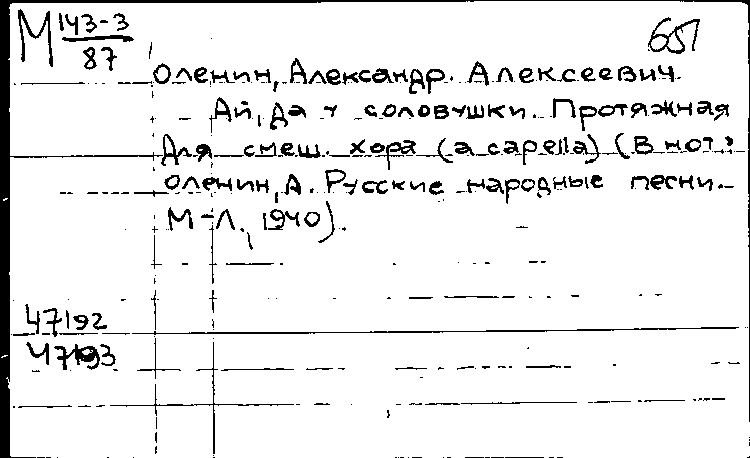 М 143-3
87
651
Оленин, Александр. Алексеевич.
Ай, да у соловушки. Протяжная
Для смеш. хора (a capella) (В нот:
Оленин, А. Русские народные песни.-
М-Л., 1940).
47192
47193